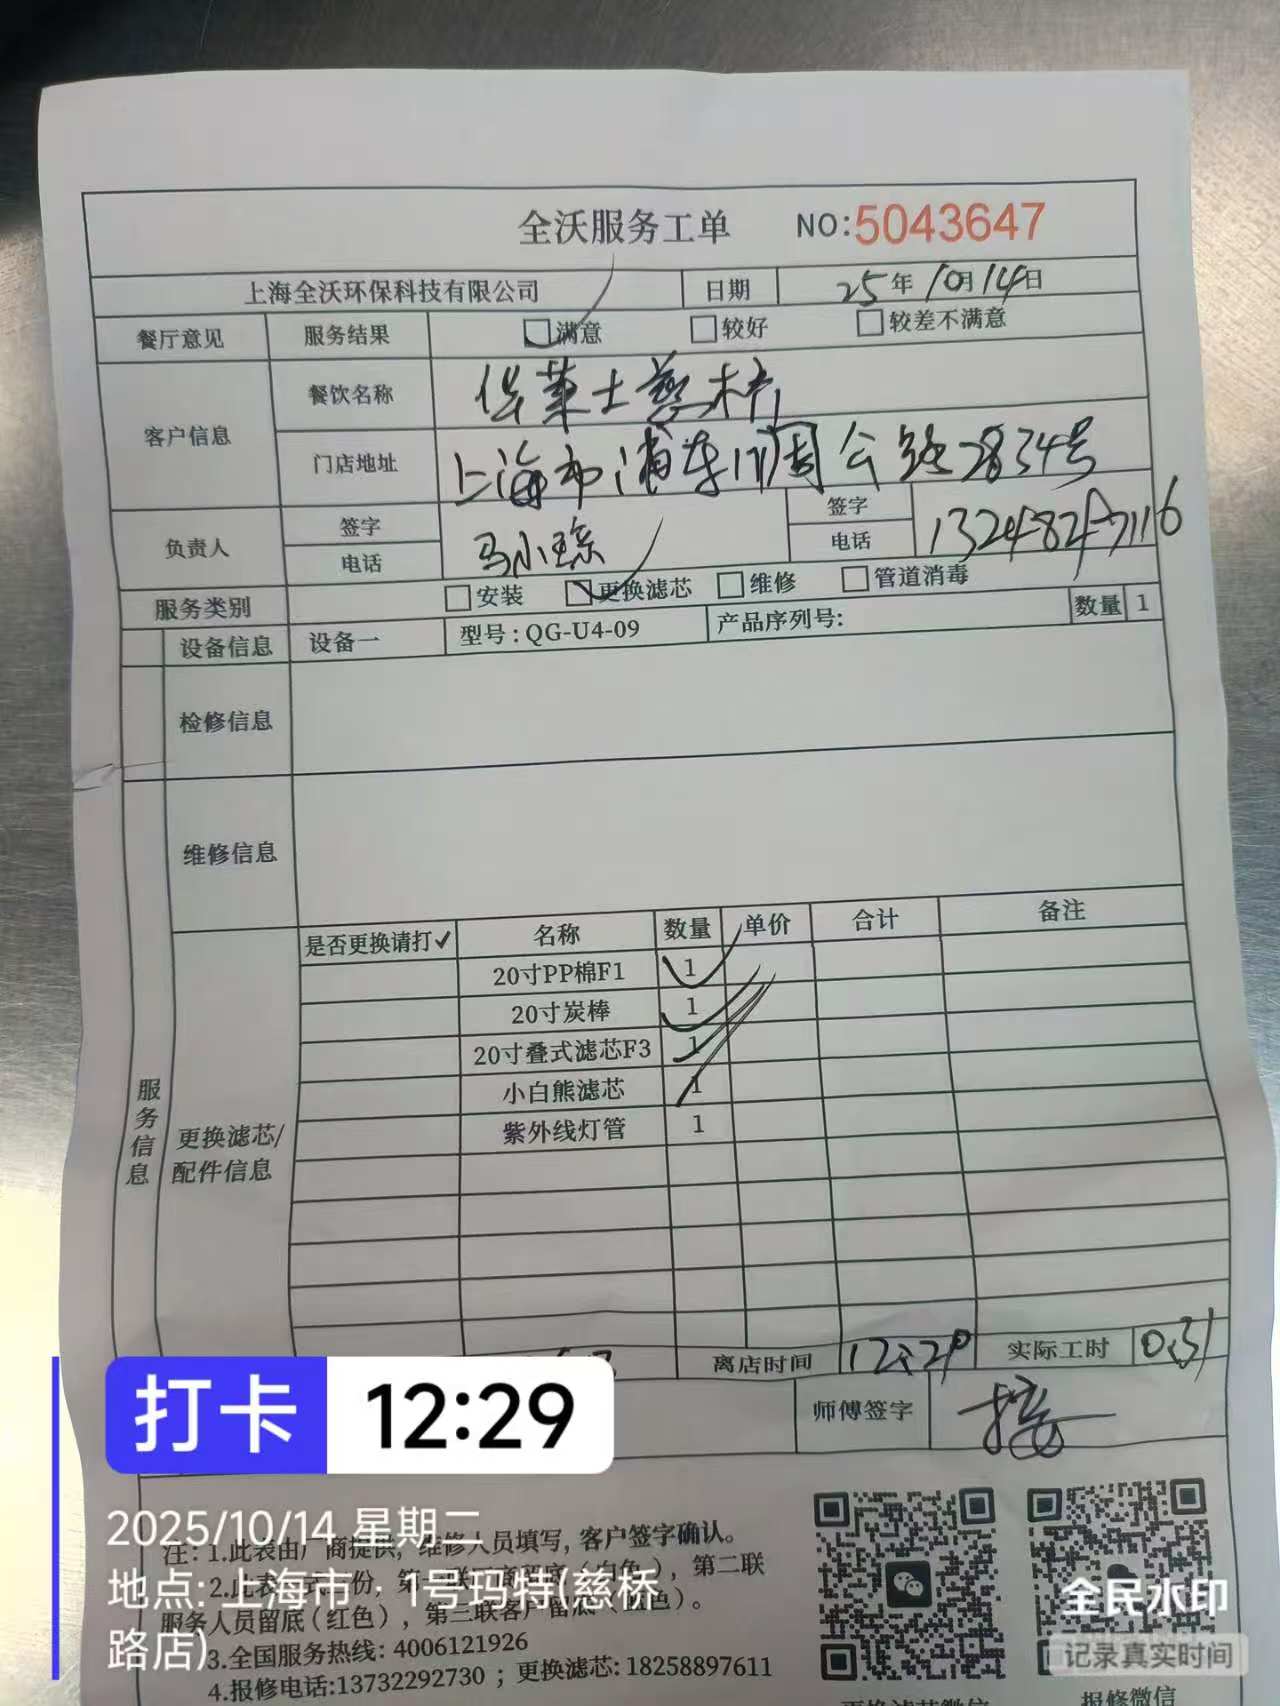 全沃服务工单 NO:5043647
上海全沃环保科技有限公司 日期 25年10月14日
餐厅意见 服务结果 满意 较好 较差不满意
客户信息 餐饮名称 华莱士慈桥
门店地址 上海市浦东川周公路2834号
负责人 签字 马小琼 签字
电话 电话 13248247116
服务类别 安装 更换滤芯 维修 管道消毒
设备信息 设备一 型号:QG-U4-09 产品序列号: 数量 1
检修信息
维修信息
服务信息
更换滤芯/
配件信息
是否更换请打✓ 名称 数量 单价 合计 备注
20寸PP棉F1 1
20寸炭棒 1
20寸叠式滤芯F3 1
小白熊滤芯 1
紫外线灯管 1
离店时间 实际工时
师傅签字
打卡 12:29
2025/10/14 星期二
地点: 上海市·1号玛特(慈桥
路店)
注: 1.此表由厂商提供, 维修人员填写, 客户签字确认。
服务人员留底(红色), 第三联客户留底
3.全国服务热线: 4006121926
4.报修电话:13732292730 ; 更换滤芯: 18258897611
全民水印
记录真实时间
更换滤芯微信
报修微信